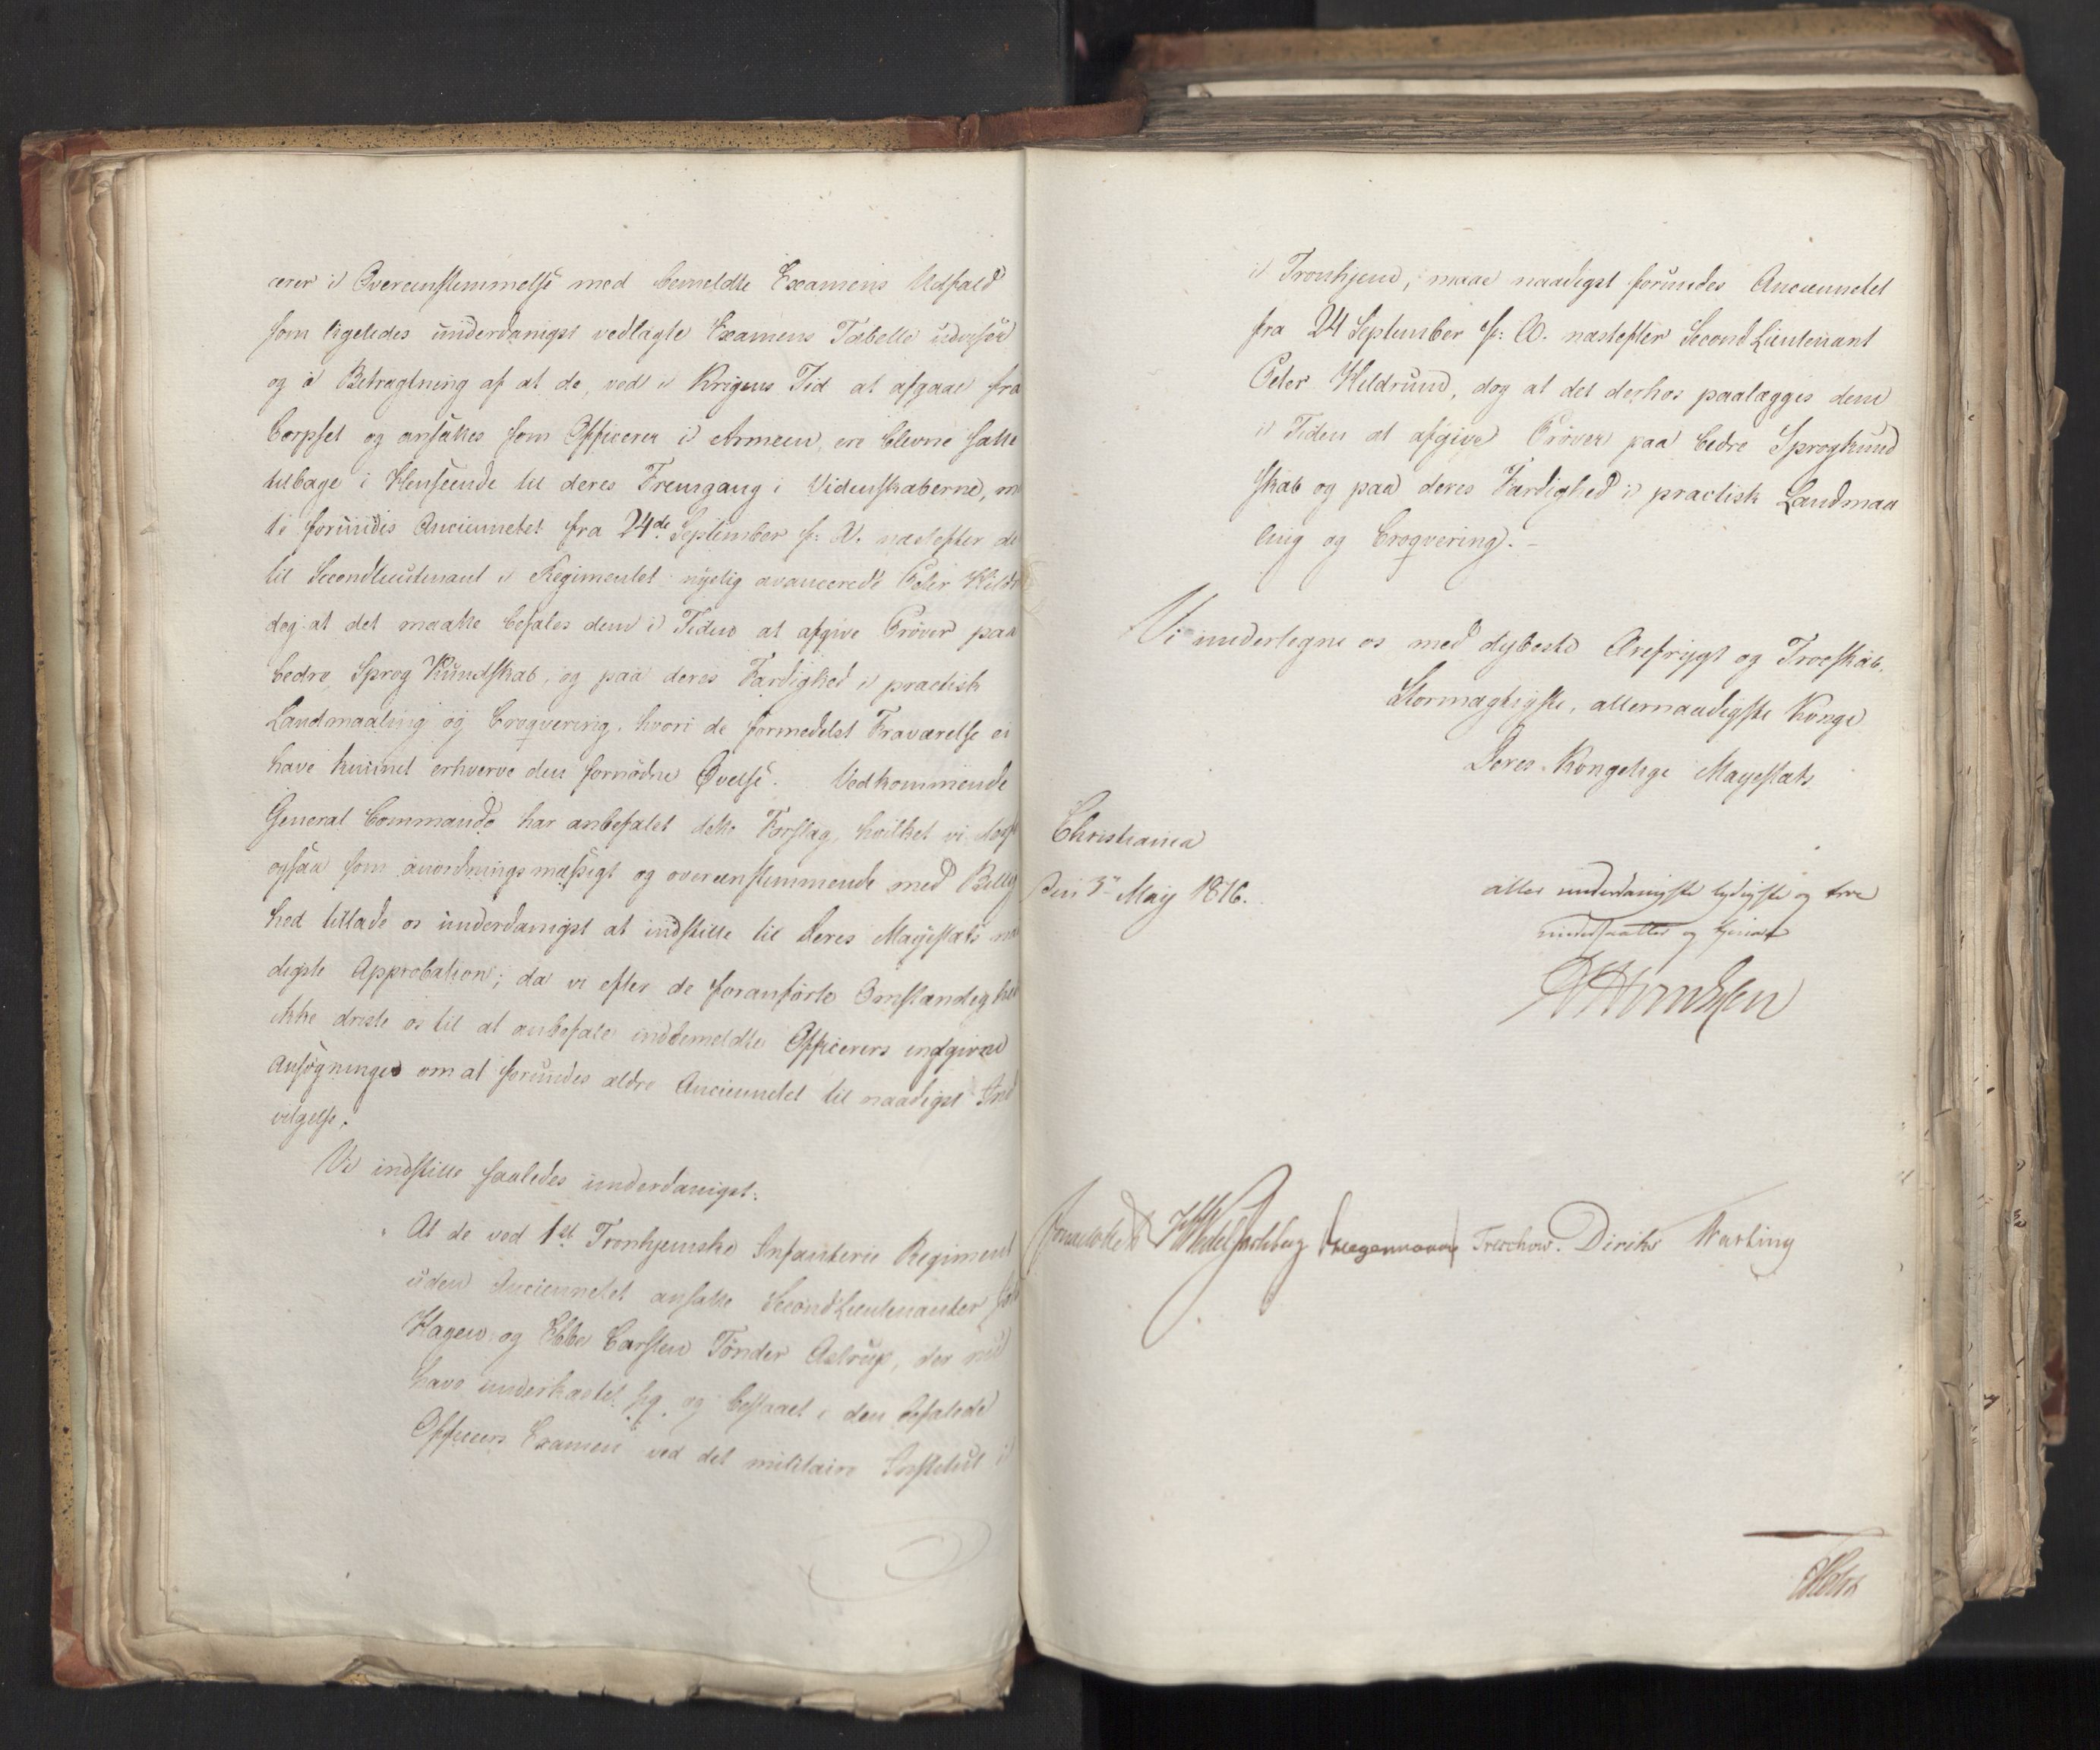 cerer i Overeensstemmelse med bemeldte Examens Udfald
som ligeledes underdanigst vedlagte Examens Tabelle udviser
og i Betragtning af at de, ved i Krigens Tid at afgaae fra
Corpset og ansættes som Officerer i Armeen, ere blevne satte
tilbage i Henseende til deres Fremgang i Videnskaberne, m
te forundes Anciennetet fra 24de September f: A. næstefter de
til Secondlieutenant i Regimentet nyelig avancerede Peter Hildr
dog at det maatte befales dem i Tiden at afgive Prøver paa
bedre Sprog Kundskab, og paa deres Færdighed i practisk
Landmaaling og Croqvering, hvori de formedelst Fraværelse ei
have kunnet erhverve den fornødne Øvelse. Vedkommende
General Commando har anbefalet dette Forslag, hvilket vi
ogsaa som anordningsmæssigt og overeensstemmende med Billig
hed tillade os underdanigst at indstille til Deres Majestæts naa
digste Approbation; da vi efter de foranførte Omstændighe
ikke driste os til at anbefale indbemeldte Officerers indgivne
Ansøgninger om at forundes ældre Anciennetet til naadigst Ind
vilgelse.
Vi indstille saaledes underdanigst:
At de ved 1st Tronhjemske Infanterie Regiment
uden Anciennetet ansatte SecondLieutenanter
Hagen og Ebbe Carsten Tønder Astrup, der nu
have underkastet sig og bestaaet i den befalede
Officiers Examen ved det militaire Institut i
i Tronhjem, maae naadigst forundes Anciennetet
fra 24 September f: A. næstefter Second Lieutenant
Peter Hildrund, dog at det derhos paalægges dem
i Tiden at afgive Prøver paa bedre Sprogkund
skab og paa deres Færdighed i practisk Landmaa
ling og Croqvering. -
Vi undertegne os med dybeste Ærefrygt og Troeskab,
Stormægtigste, allernaadigste Konge
Deres Kongelige Majestæts
Christiania
den 3die May 1816.
allerunderdanigste lydigste og troe
undersaatter og tjenere
Treschow. Diriks Mariboe
Holst